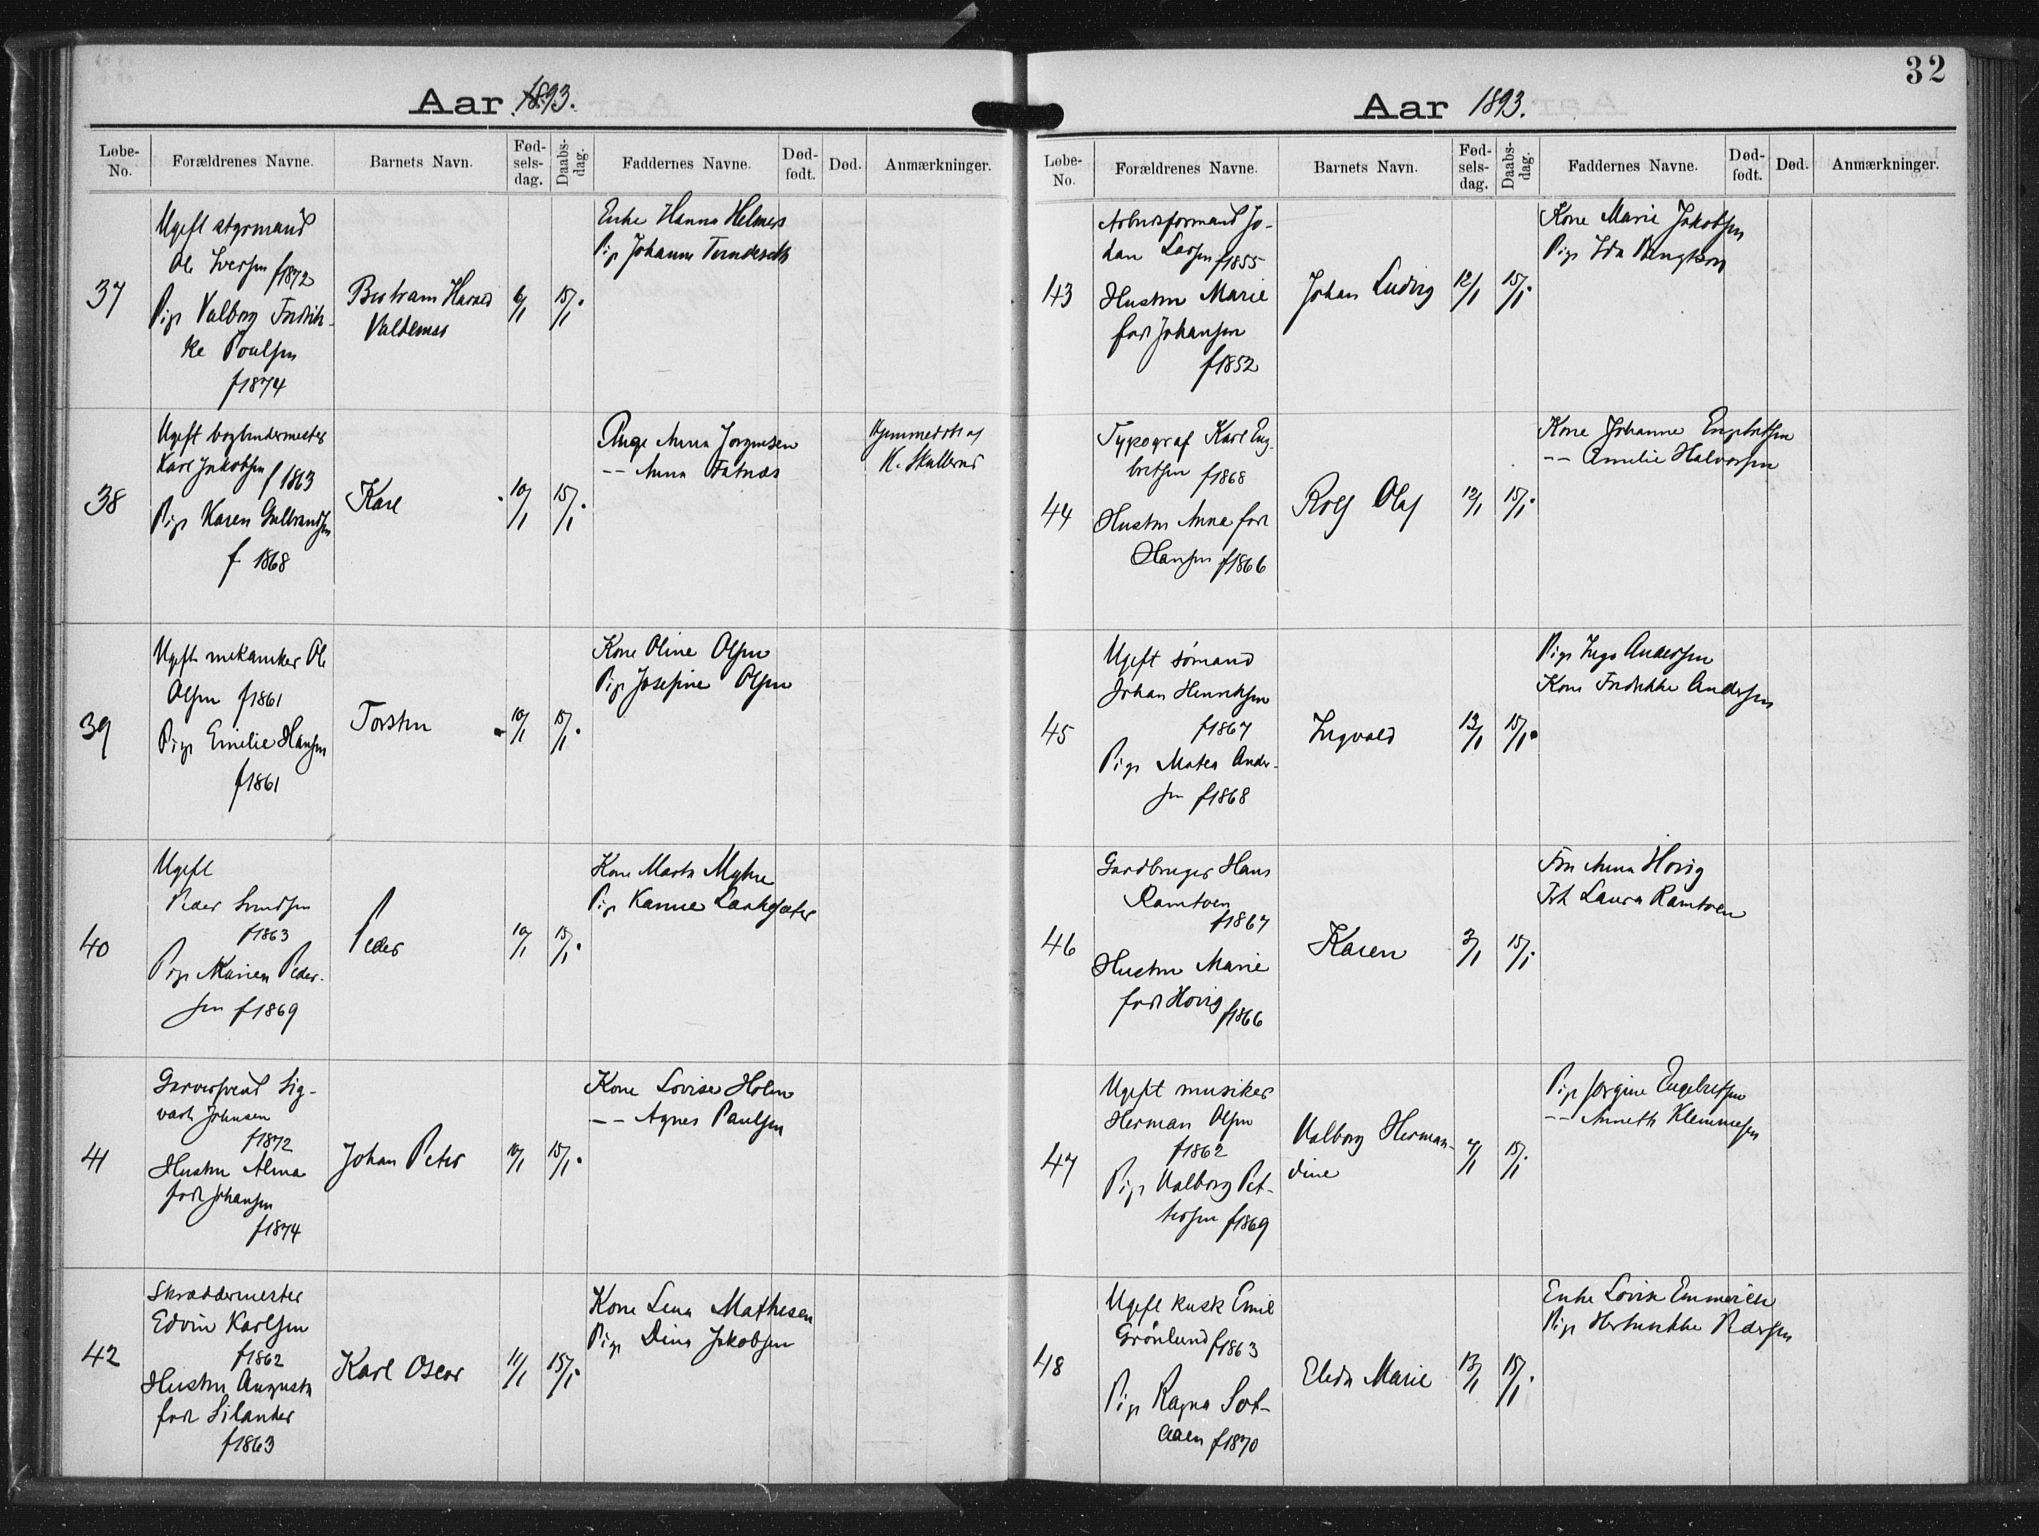 Aar 1893.
Løbe-No. Forældrenes Navne. Barnets Navn. Fød-sels-dag. Daabs-dag. Faddernes Navne. Død-født. Død. Anmærkninger.
37
Ugift styrmand
Ole Iversen f1872
Pige Valborg Fredrik-
ke Poulsen
f1874
Bertram Harald
Valdemar
6/1
15/1
Enke Hanna Helmers
Pige Johanne
38
Ugift bogbindermester
Karl Jakobsen f 1863
Pige Karen Gulbrandsen
f 1868
Karl
10/1
15/1
Pige Anna Jørgensen
-- Anna
Hjemmedøbt af
K. Skullerud
39
Ugift mekaniker Ole
Olsen f1861
Pige Emilie Hansen
f1861
Torsten
10/1
15/1
Kone Oline Olsen
Pige Josefine Olsen
40
Ugift
Peder Svendsen
f1863
Pige Maren Peder-
sen f1869
Peder
10/1
15/1
Kone Marta Myhre
Pige
41
Garversvend Sig-
vart Johnsen
f1872
Hustru Alma
født Johansen
f1874
Johan Peter
10/1
15/1
Kone Lovise Holm
-- Agnes Paulsen
42
Skræddermester
Edvin Karlsen
f1862
Hustru Augusta
født Silander
f1863
Karl Oscar
11/1
15/1
Kone Lena Mathesen
Pige Dina Jakobsen
32
Aar 1893.
Løbe-No. Forældrenes Navne. Barnets Navn. Fød-sels-dag. Daabs-dag. Faddernes Navne. Død-født. Død. Anmærkninger.
43
Arbeidsformand Jo-
han Larsen f1855
Hustru Marie
født Johansen
f1852
Johan Ludvig
12/1
15/1
Kone Marie Jakobsen
Pige Ida Bengtson
44
Typograf Karl Eng-
bretsen f1868
Hustru Anna født
Hansen f1866
Rolf Olaf
12/1
15/1
Kone Johanne Engebretsen
-- Amelie Halvorsen
45
Ugift sømand
Johan Henriksen
f1867
Pige Matea Ander-
sen f1868
Ingvald
13/1
15/1
Pige Inga Andersen
Kone Fredrikke Andersen
46
Gardbruger Hans
Ramtven
f1867
Hustru Marie
født Hovig f1866
Karen
3/1
15/1
Fru Anna Hovig
Frk Laura Ramtven
47
Ugift musiker
Herman Olsen
f1862
Pige Valborg Pet-
tersen f1869
Valborg Herman-
dine
4/1
15/1
Pige Jørgine Engebretsen
-- Anneth Klemmesen
48
Ugift kusk Emil
Grönlund f1863
Pige Ragna Sot-
aaen f1870
Eleda Marie
13/1
15/1
Enke Lovise
Pige Pedersen